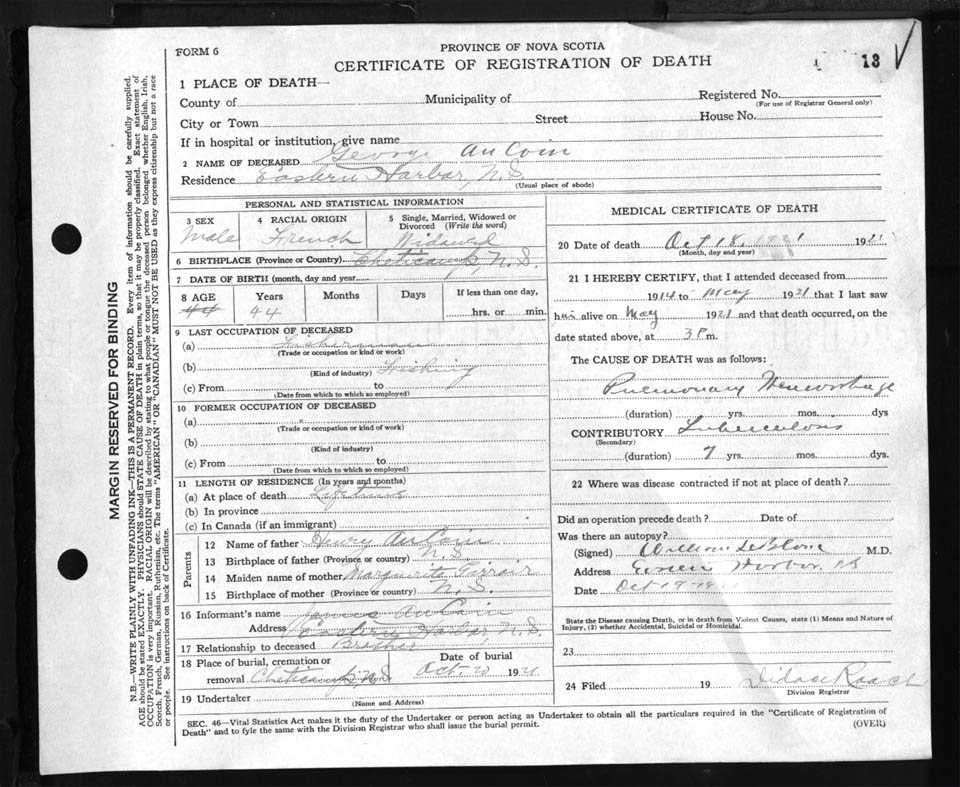 PROVINCE OF NOVA SCOTIA
FORM 6
CERTIFICATE OF REGISTRATION OF DEATH
13
1 PLACE OF DEATH—
County of Municipality of Registered No.
(For use of Registrar General only)
City or Town Street House No.
If in hospital or institution, give name
2 NAME OF DECEASED George AuCoin
Residence Eastern Harbor, N.S.
(Usual place of abode)
PERSONAL AND STATISTICAL INFORMATION
3 SEX 4 RACIAL ORIGIN 5 Single, Married, Widowed or
Divorced (Write the word)
Male French Widowed
6 BIRTHPLACE (Province or Country) Cheticamp, N.S.
7 DATE OF BIRTH (month, day and year)
8 AGE Years Months Days If less than one day,
44 44 hrs. or min.
9 LAST OCCUPATION OF DECEASED
(a) Fisherman
(Trade or occupation or kind or work)
(b) Fishing
(Kind of industry)
(c) From to
(Date from which to which so employed)
10 FORMER OCCUPATION OF DECEASED
(a)
(Trade or occupation or kind of work)
(b)
(Kind of industry)
(c) From to
(Date from which to which so employed)
11 LENGTH OF RESIDENCE (In years and months)
(a) At place of death Lifetime
(b) In province
(c) In Canada (if an immigrant)
Parents
12 Name of father Henry AuCoin
13 Birthplace of father (Province or country) N.S.
14 Maiden name of mother Marguerite
15 Birthplace of mother (Province or country) N.S.
16 Informant's name James AuCoin
Address Eastern Harbor, N.S.
17 Relationship to deceased Brother
18 Place of burial, cremation or Date of burial
removal Cheticamp, N.S. Oct 20 1921
19 Undertaker
(Name and Address)
MEDICAL CERTIFICATE OF DEATH
20 Date of death Oct 18, 1921 1921
(Month, day and year)
21 I HEREBY CERTIFY, that I attended deceased from
1914 to May 1921 that I last saw
him alive on May 1921 and that death occurred, on the
date stated above, at 3 P. m.
The CAUSE OF DEATH was as follows:
Pulmonary Hemorrhage
(duration) yrs. mos. dys
CONTRIBUTORY Tuberculosis
(Secondary)
(duration) 7 yrs. mos. dys.
22 Where was disease contracted if not at place of death?
Did an operation precede death? Date of
Was there an autopsy?
(Signed) William LeBlanc M.D.
Address Harbor, NS
Date Oct 19
State the Disease causing Death, or in death from Violent Causes, state (1) Means and Nature of
Injury, (2) whether Accidental, Suicidal or Homicidal.
23
24 Filed 19
Division Registrar
SEC. 46—Vital Statistics Act makes it the duty of the Undertaker or person acting as Undertaker to obtain all the particulars required in the "Certificate of Registration of
Death" and to fyle the same with the Division Registrar who shall issue the burial permit. (OVER)
MARGIN RESERVED FOR BINDING
N.B.—WRITE PLAINLY WITH UNFADING INK—THIS IS A PERMANENT RECORD. Every item of information should be carefully supplied.
AGE should be stated EXACTLY. PHYSICIANS should STATE CAUSE OF DEATH in plain terms, so that it may be properly classified. Exact statement of
OCCUPATION is very important. RACIAL ORIGIN will be described by stating to what people or tongue the deceased person belonged whether English, Irish,
Scotch, French, German, Russian, Ruthenian, etc. The terms "AMERICAN" OR "CANADIAN" MUST NOT BE USED as they express citizenship but not a race
or people. See instructions on back of Certificate.